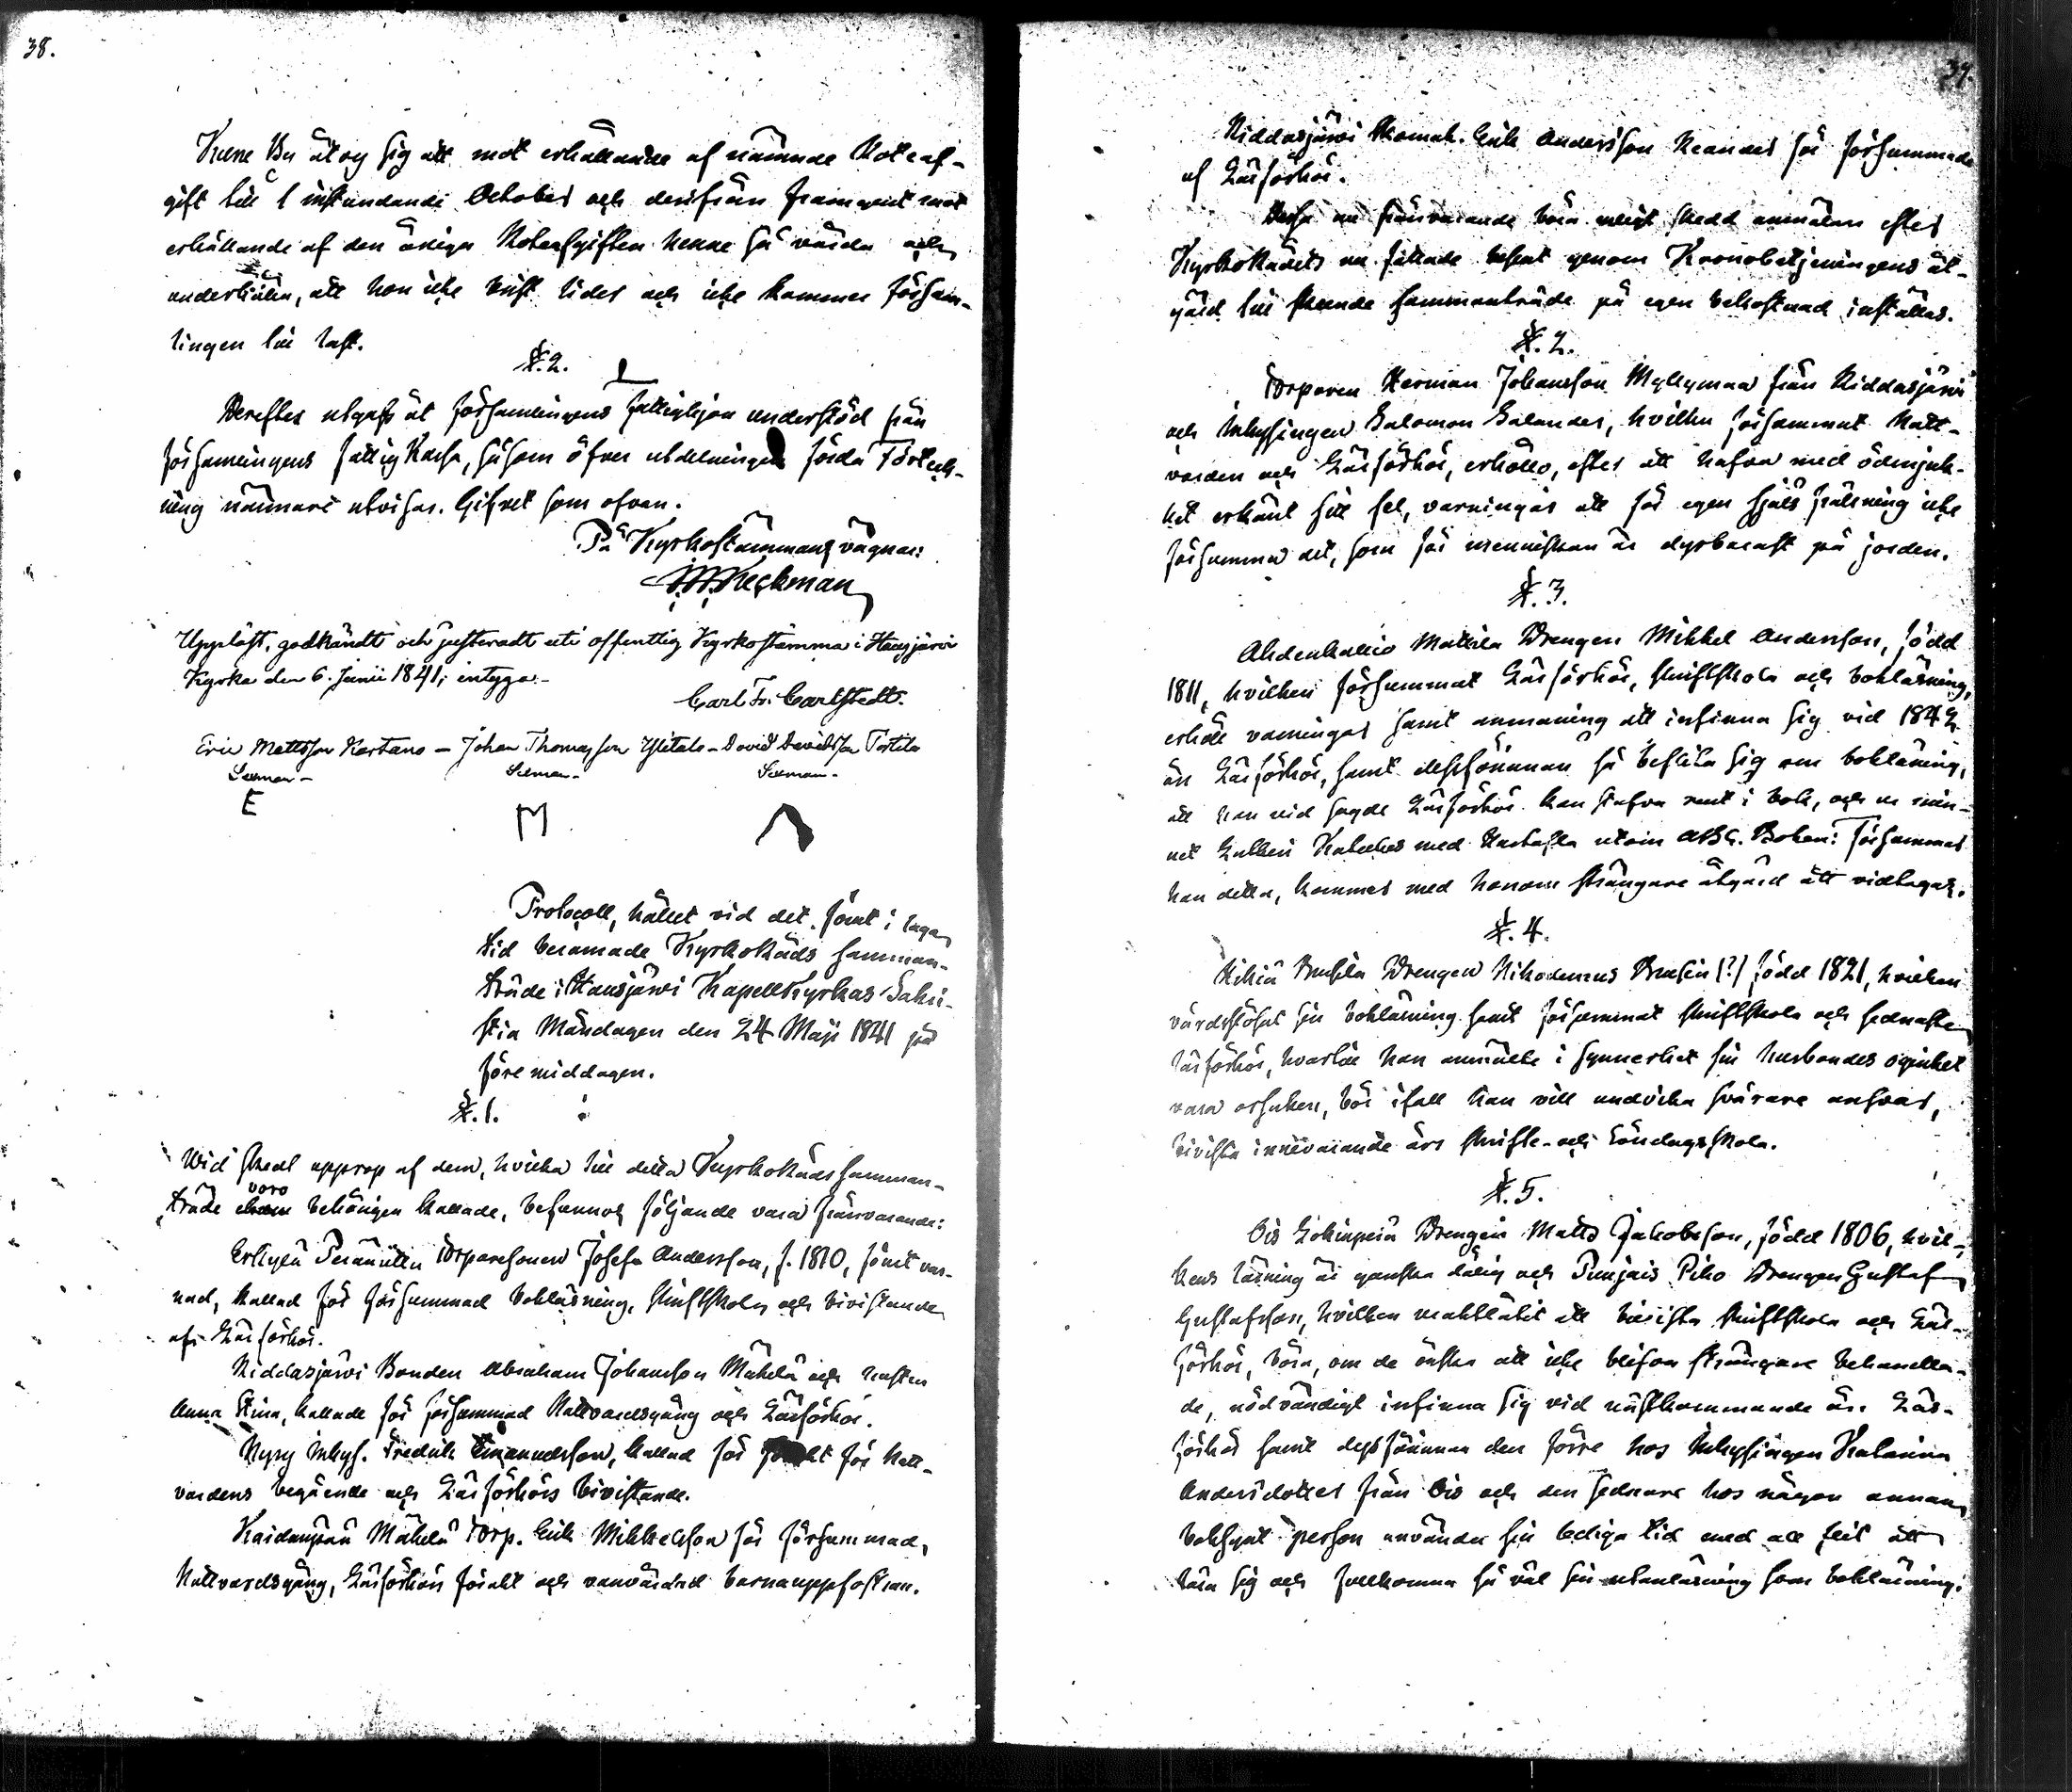 38.
Kuene By åtog sig att mot erhållande af nämnde Roteaf-
gift till 1 instundande October och derifrån framgent mot
erhållande af den årliga Roteafgiften henne så vårda och
underhålla, att hon icke brist lider och icke kommer försam-
lingen till last.
§. 2.
Derefter utgafs åt församlingens fattighjon understöd från
församlingens fattig Kassa, såsom öfver utdelningen förda Förteck-
ning närmare utvisar. Gifvet som ofvan.
På Kyrkostämmans vägnar:
Keckman
Uppläst, godkändt och justeradt uti offentlig Kyrkostämma i Hausjärvi
Kyrka den 6. Junii 1841; intyga.-
Carl Fr. Carlstedt.
Eric Mattsson Kartano - Johan Thomasson Ylitalo - David Davidsson Tertila
Sexman - Sexman - Sexman -
E M
Protocoll, hållet vid det, förut i laga
tid beramade Kyrkoråds samman-
träde i Hausjärvi Kapellkyrkas Sakri-
stia Måndagen den 24 Maji 1841 på
föremiddagen.
§. 1.
Wid skedt upprop af dem, hvilka till detta Kyrkoråds samman-
träde voro behörigen kallade, befunnos följande vara frånvarande:
Erkylä Perännitty Torparesonen Josef Andersson, f. 1810, förut var-
nad, kallad för försummad bokläsning, skriftskola och bivistande
af Läsförhör.
Riddasjärvi Bonden Abraham Johansson Mäkelä och hustru
Anna Stina, kallade för försummad Nattvardsgång och Läsförhör.
Ryry Inhys. Fredrik Emanuelsson, kallad för förakt för Natt-
vardens begående och Läsförhörs bivistande.
Karidanpää Mäkelä Torp. Erik Mikkelsson för försummad
Nattvardsgång, Läsförhörs förakt och vanvårdad barnauppfostran.
39.
Riddasjärvi Skomak. Erik Andersson Reander för försummade
af Läsförhör.
Desse nu frånvarande böra enligt skedd anmälan efter
Kyrkorådets nu fällade beslut genom Kronobetjeningens åt-
gärd till skeende sammanträde på egen bekostnad inställas.
§. 2.
Torparen Herman Johansson Myllymaa från Riddasjärvi
och Inhysingen Salomon Salander, hvilka försummat Natt-
varden och Läsförhör, erhöllo, efter att hafva med ödmjuk-
het erkänt sitt fel, varningar att för egen själs frälsning icke
försumma det, som för menniskan är dyrbarast på jorden.
§. 3.
Ahdenkallio Mattila Drengen Mikkel Andersson, född
1811, hvilken försummat Läsförhör, skriftskola och bokläsning,
erhöll varningar samt anmaning att infinna sig vid 1842
års Läsförhör, samt dessförinnan så beflita sig om bokläsning,
att han vid sagde Läsförhör kan stafva rent i bok, och ur min-
net Lutheri Katekes med Hustafla utom ABC. Boken: Försummar
han detta, kommer med honom strängare åtgärd att vidtagas.
§. 4.
Rikiä Brusila Drengen Nikodemus Brusin (?) född 1821, hvilken
vårdslösat sin bokläsning samt försummat skriftskola och sednaste
läsförhör, hvartill han anmälte i synnerhet sin husbondes ogenhet
vara orsaken, bör ifall han vill undvika svårare ansvar,
bivista innevarande års skrifte- och Söndagsskola.
§. 5.
Ois Lokinperä Drengen Matts Jakobsson, född 1806, hvil-
kens läsning är ganska dålig och Punjais Piho Drengen Gustaf
Gustafsson, hvilken maktlåtit att bivista skriftskola och Läs-
förhör, böra, om de önska att icke blifva strängare behandla-
de, nödvändigt infinna sig vid nästkommande års Läs-
förhör samt dessförinnan den förre hos Inhysingen Katarina
Andersdotter från Ois och den sednare hos någon annan
bokhynt person använda sin lediga tid med all flit att
lära sig och fullkomna så väl sin utanläsning som bokläsning.